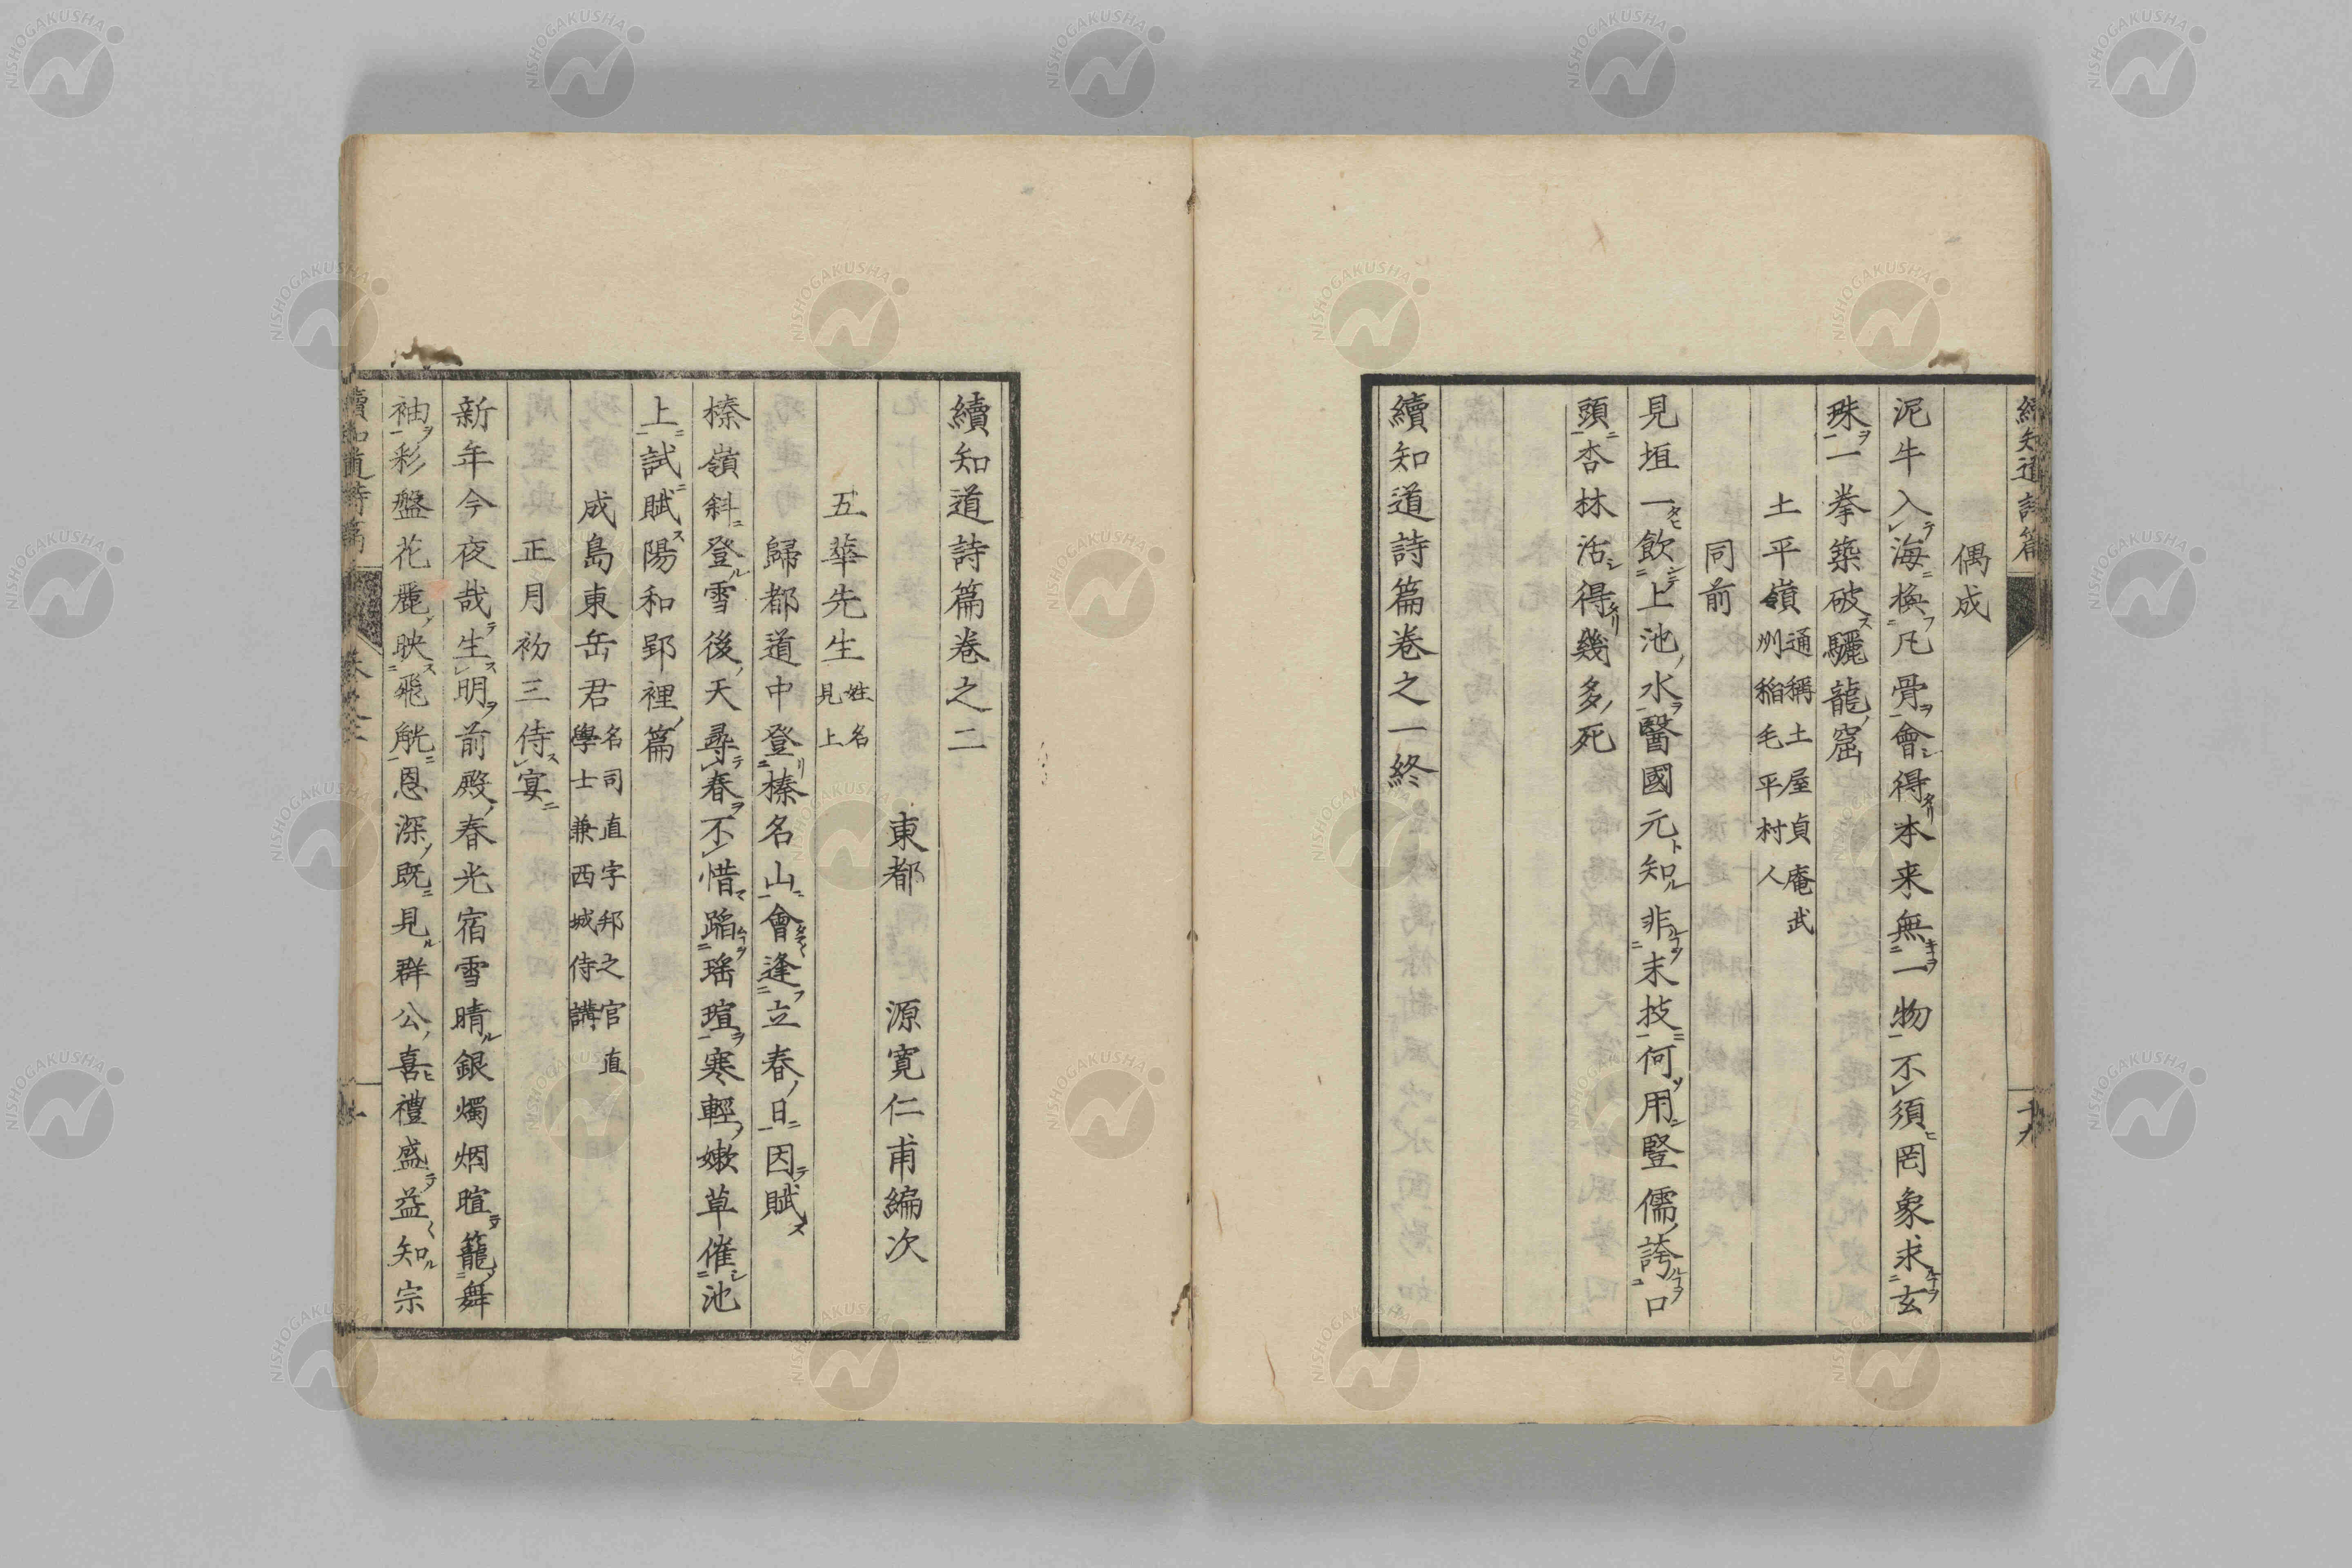 續知道詩篇
十九
偶成
泥牛入海換凡骨會得本来無一物不須罔象求玄
珠一拳築破驪龍窟
土平嶺通稱土屋貞庵武州稲毛平村人
同前
見垣一飲上池水醫國元知非末技何用豎儒誇口
頭杏林活得幾多死
續知道詩篇卷之一終
續知道詩篇卷之二
東都 源寛仁甫編次
五華先生姓名見上
歸都道中登榛名山會逢立春日因賦
榛嶺斜登雪後天尋春不惜蹈瑤瑄寒輕嫩草催池
上試賦陽和郢裡篇
成島東岳君名司直字邦之官直學士兼西城侍講
正月初三侍宴
新年今夜哉生明前殿春光宿雪晴銀燭烟暄籠舞
袖彩盤花麗映飛觥恩深既見群公喜禮盛益知宗
續知道詩篇
NISHOGAKUSHA